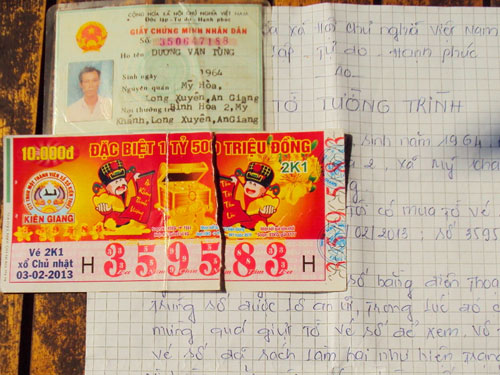 CỘNG HÒA XÃ HỘI CHỦ NGHĨA VIỆT NAM
Độc lập - Tự do - Hạnh phúc
GIẤY CHỨNG MINH NHÂN DÂN
Số 350647188
Họ tên DƯƠNG VĂN TÙNG
Sinh ngày 1964
Nguyên quán Mỹ Hòa,
Long Xuyên, An Giang
Bình Hòa 2, Mỹ
Khánh, Long Xuyên, An Giang
10.000đ
ĐẶC BIỆT 1 TỶ 500 TRIỆU ĐỒNG
2K1
KIÊN GIANG
Vé 2K1
xổ Chủ nhật
03-02-2013
H 359583 H
xã Hội chủ nghĩa Việt Nam
lập Tự do Hạnh phúc
TỜ TƯỜNG TRÌNH
sinh năm 1964
2 xã Mỹ Khá
có mua tờ vé
02/2013 số 3595
số bằng điện thoa
trúng số được lô an ủi, trong lúc đó
mừng quá giựt tờ vé số để xem. Vô
vé số đã rách làm hai như hiện trạng